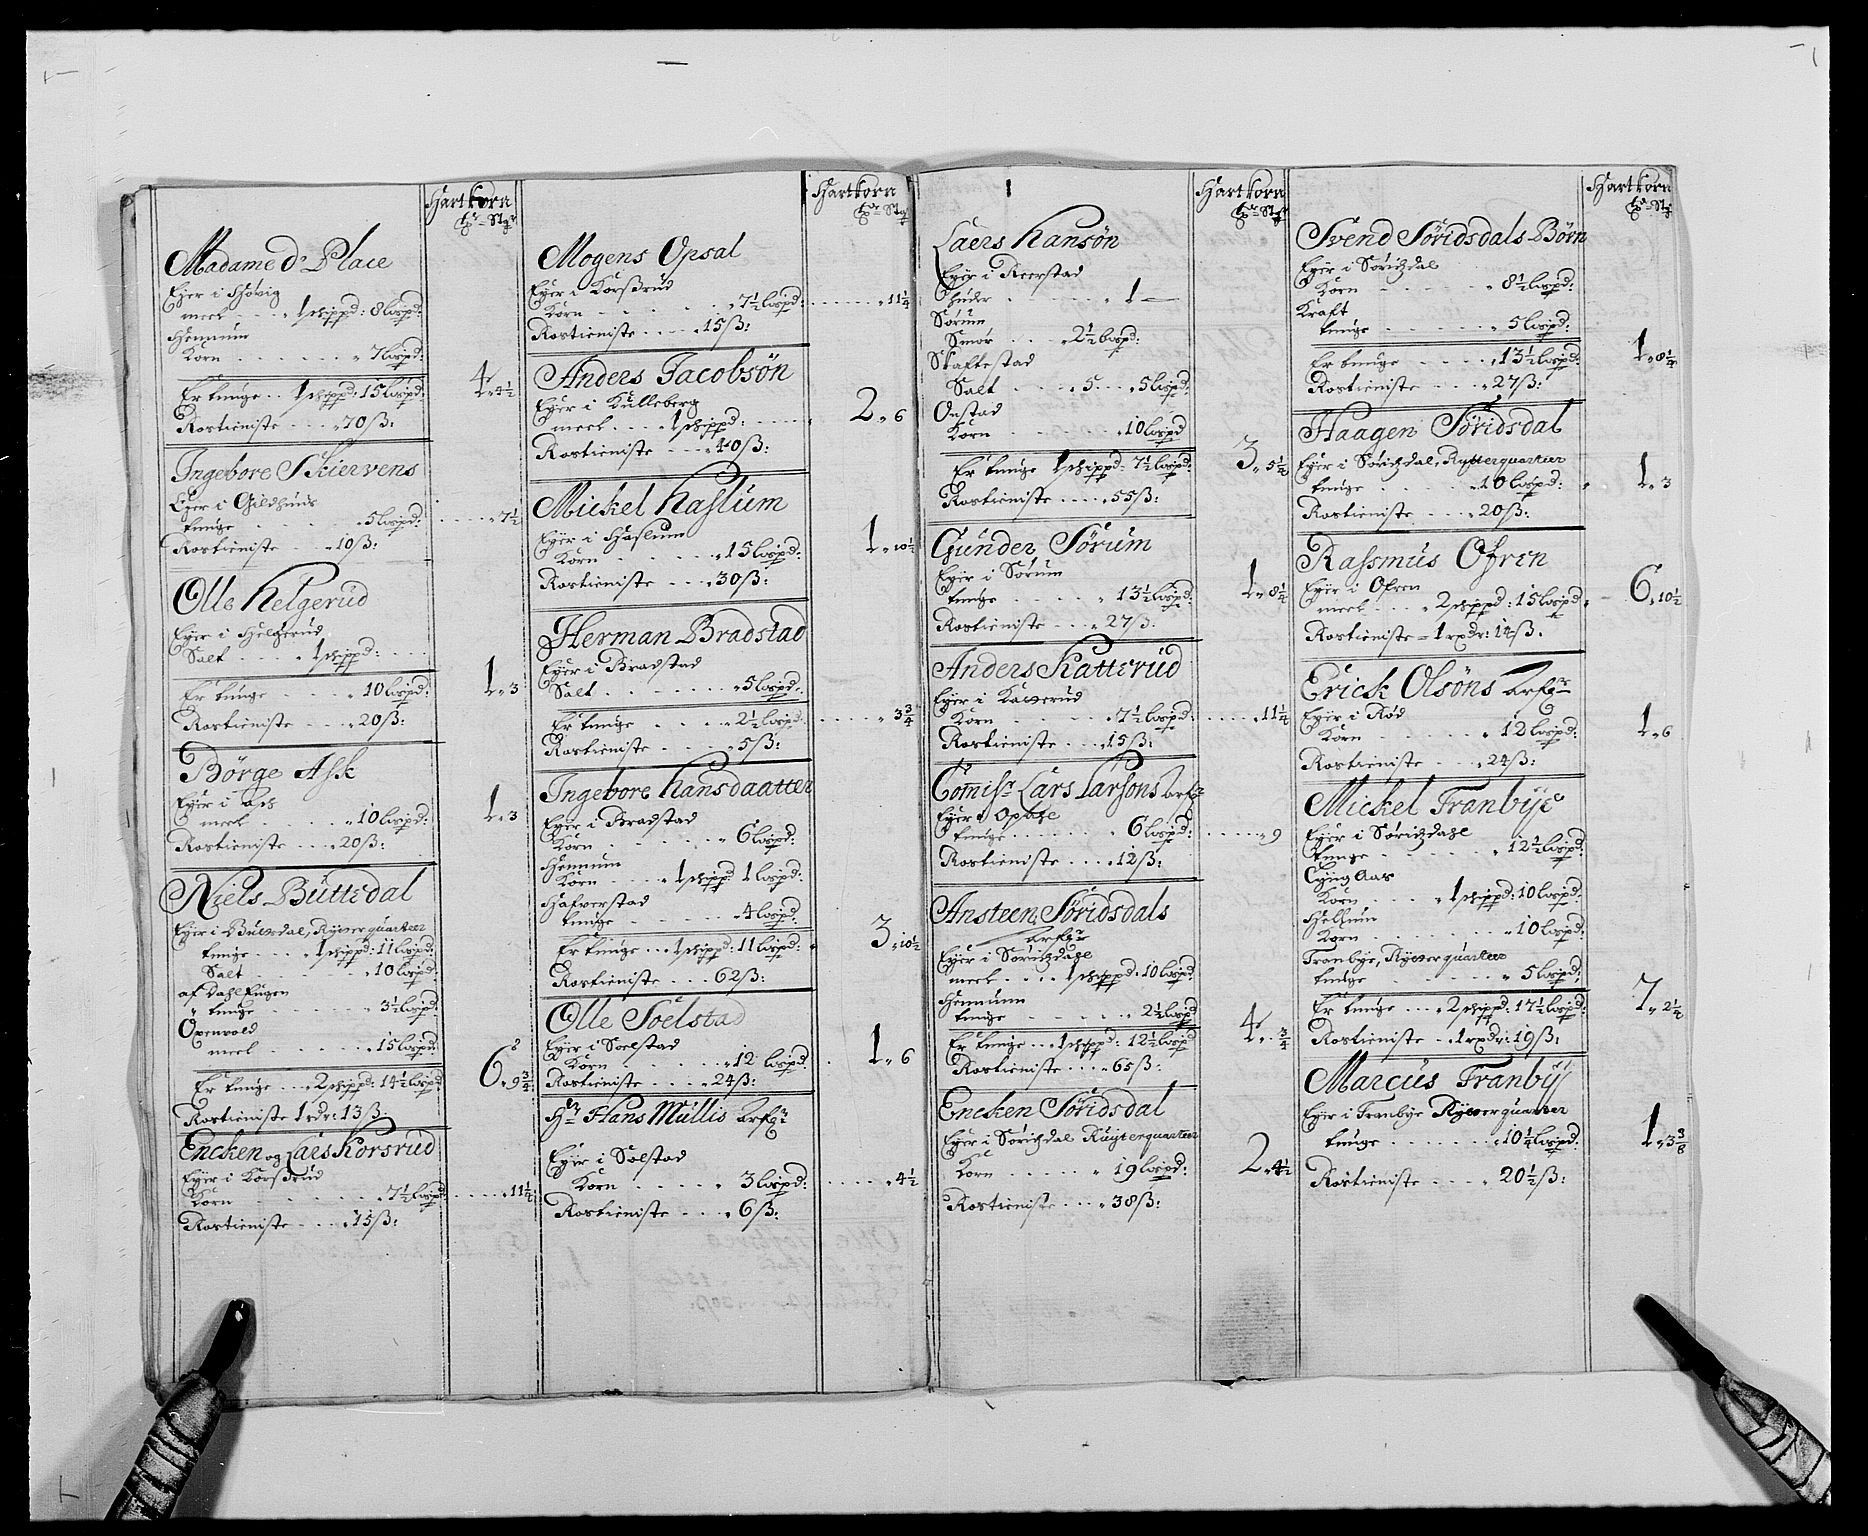 Hartkorn
Madame d' Place
Eyer i Hiövig
meel 1 schippd: 8 lispd:
Hennum
Korn 7 lispd:
Er tunge 1 schippd: 15 lispd: 4 „ 4½
Rostieniste 70 ß:
Ingebore Skiervens
Eyer i Gildhuus
tunge 5 lispd: 7½
Rostieniste 10 ß:
Olle Helgerud
Eyer i Helgerud
Salt 1 schippd:
Er tunge 10 lispd: 1 „ 3
Rostieniste 20 ß:
Börge Ask
Eyer i Aas
meel 10 lispd: 1 „ 3
Rostieniste 20 ß:
Niels Büttedal
Eyer i Buttedal, Rytterquarteer
tunge 1 schippd: 11 lispd:
Salt 10 lispd:
af Dahl Engen
tunge 3½ lispd:
Oxenvold
meel 15 lispd:
Er tunge 2 schippd: 14½ lispd: 6 „ 9¾
Rostieniste 1 rdr: 13 ß:
Encken og Lars Korsrud
Eyer i Korßrud
Korn 7½ lispd: 11½
Rostieniste 15 ß:
Hartkorn
Mogens Opsal
Eyer i Korßrud
Korn 7½ lispd: 11¼
Rostieniste 15 ß:
Anders Jacobsön
Eyer i Külleberg
meel 1 schippd: 2 „ 6
Rostieniste 40 ß:
Mickel Haslum
Eyer i Haslum
Korn 15 lispd: 1 „ 10½
Rostieniste 30 ß:
Herman Bradstad
Eyer i Bradstad
Salt 5 lispd:
Er tunge 2½ lispd: 3¾
Rostieniste 5 ß:
Ingebore Hansdaatter
Eyer i Bradstad
Korn 6 lispd:
Hennum
Korn 1 schippd 1 lispd:
Hafverstad
tunge 4 lispd:
Er tunge 1 schippd: 11 lispd: 3 „ 10½
Rostieniste 62 ß:
Olle Soelstad
Eyer i Soelstad
Korn 12 lispd 1 „ 6
Rostieniste 24 ß:
Hr Hans Müllis Arfgr
Eyer i Solstad
Korn 3 lispd: 4½
Rostieniste 6 ß:
Hartkorn
Laers Hansön
Eyer i Reerstad
Huder 1
Sörum
Smör 2½ lispd:
Skaftestad
Salt 5 lispd:
Onstad
Korn 10 lispd
Er tunge 1 schippd: 7½ lispd: 3 „ 5½
Rostieniste 55 ß:
Gunder Sörum
Eyer i Sörum
tunge 13½ lispd: 1 „ 8¼
Rostieniste 27 ß:
Anders Katterud
Eyer i Katterud
Korn 7½ lispd: 11¼
Rostieniste 15 ß:
Comisr Lars Larsons Arfgr
Eyer i
tunge 6 lispd: 9
Rostieniste 12 ß:
Ansteen Söridsdals
Arfgr
Eyer i Söridzdahl
meel 1 schippd: 10 lispd:
Hennum
tunge 2½ lispd
Er tunge 1 schippd: 12½ lispd 4 „ ¾
Rostieniste 65 ß:
Encken Söridsdal
Eyer i Söridzdal Ruyterquarteer
Korn 19 lispd: 2 „ 4½
Rostieniste 38 ß:
Hartkorn
Svend Söridsdals Börn
Eyer i Söridzdal
Korn 8½ lispd:
Kraft
tunge 5 lispd:
Er tunge 13½ lispd: 1 „ 8¼
Rostieniste 27 ß:
Haagen Söridsdal
Eyer i Söridzdal, Rytterquartier
tunge 10 lispd: 1 „ 3
Rostieniste 20 ß:
Rassmus Ofren
Eyer i Ofren
meel 2 schippd: 15 lispd 6 „ 10½
Rostieniste 1 rxdr: 14 ß.
Erick Olsöns Arfgr
Eyer i Röd
Korn 12 lispd: 1 „ 6
Rostieniste 24 ß:
Mickel Tranbÿe
Eyer i Söridzdahl
tunge 12½ lispd:
Lyng Aas
Korn 1 schippd: 10 lispd:
Hellum
Korn 10 lispd:
Tranbye, Rytterquarteer
tunge 5 lispd:
Er tunge 2 schippd: 17½ lispd: 7 „ 2¼
Rostieniste 1 rxdr: 19 ß:
Marcus Tranbÿ
Eyer i Tranbye Rytterquarteer
tunge 10¼ lispd: 1 „ 3⅜
Rostieniste 20½ ß: